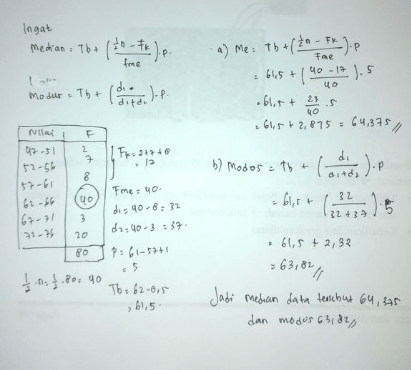 Ingat
Median = Tb + (½n - Fk / fme) . p.
Modus = Tb + (d1 / d1+d2) . p.
Nilai F
47-51 2
52-56 7
57-61 8
62-66 40
67-71 3
72-76 20
80
½.n = ½.80 = 40
Fk = 2+7+8
= 17
Fme = 40.
d1 = 40-8 = 32
d2 = 40-3 = 37.
P = 61-57+1
= 5
Tb = 62-0,5
= 61,5.
a) Me = Tb + (½n - Fk / Fme) . p
= 61,5 + (40 - 17 / 40) . 5
= 61,5 + 23/40 . 5
= 61,5 + 2,875 = 64,375 //
b) Modos = Tb + (d1 / d1+d2) . p
= 61,5 + (32 / 32+37) . 5
= 61,5 + 2,32
= 63,82 //
Jadi median data tersebut 64,375
dan modus 63,82 //